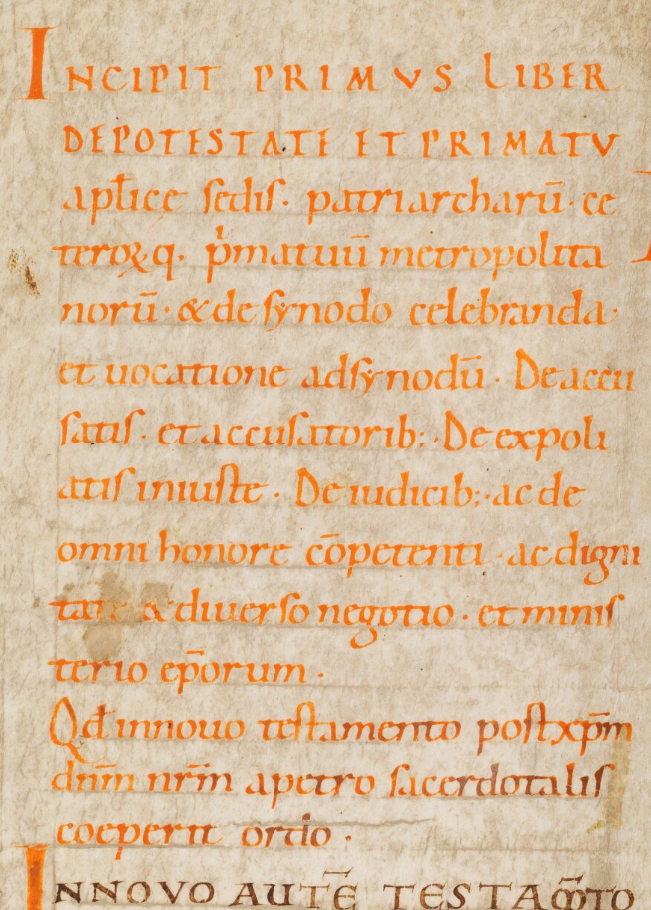 INCIPIT PRIMVS LIBER
DEPOTESTATE ET PRIMATV
apl̄icę sedis· patriarcharū· ce
teroꝝq· pͥmatuū metropolita
norū· & de synodo celebranda·
et uocatione adsynodū· De accu
satis· et accusatorib;· De expoli
atis iniuste· De iudicib;· ac de
omni honore cōpetenti· ac digni
tate & diuerso negotio· et minis
terio ep̄orum·
Qd̄ innouo testamento post xp̄m
dn̄m nr̄m apetro sacerdotalis
coeperit ordo·
INNOVO AUTĒ TESTAM̄TO